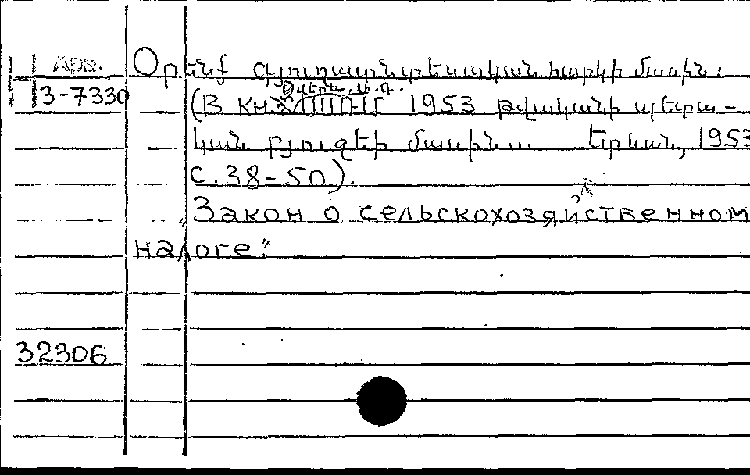 Арм.
Օրենք գյուղատնտեսական հարկի մասին:
Н 3-7330
(В кн. 1953 թվականի պետա-
կան բյուջեի մասին... Երևան, 1953
с. 38-50).
Закон о сельскохозяйственном
налоге."
32306